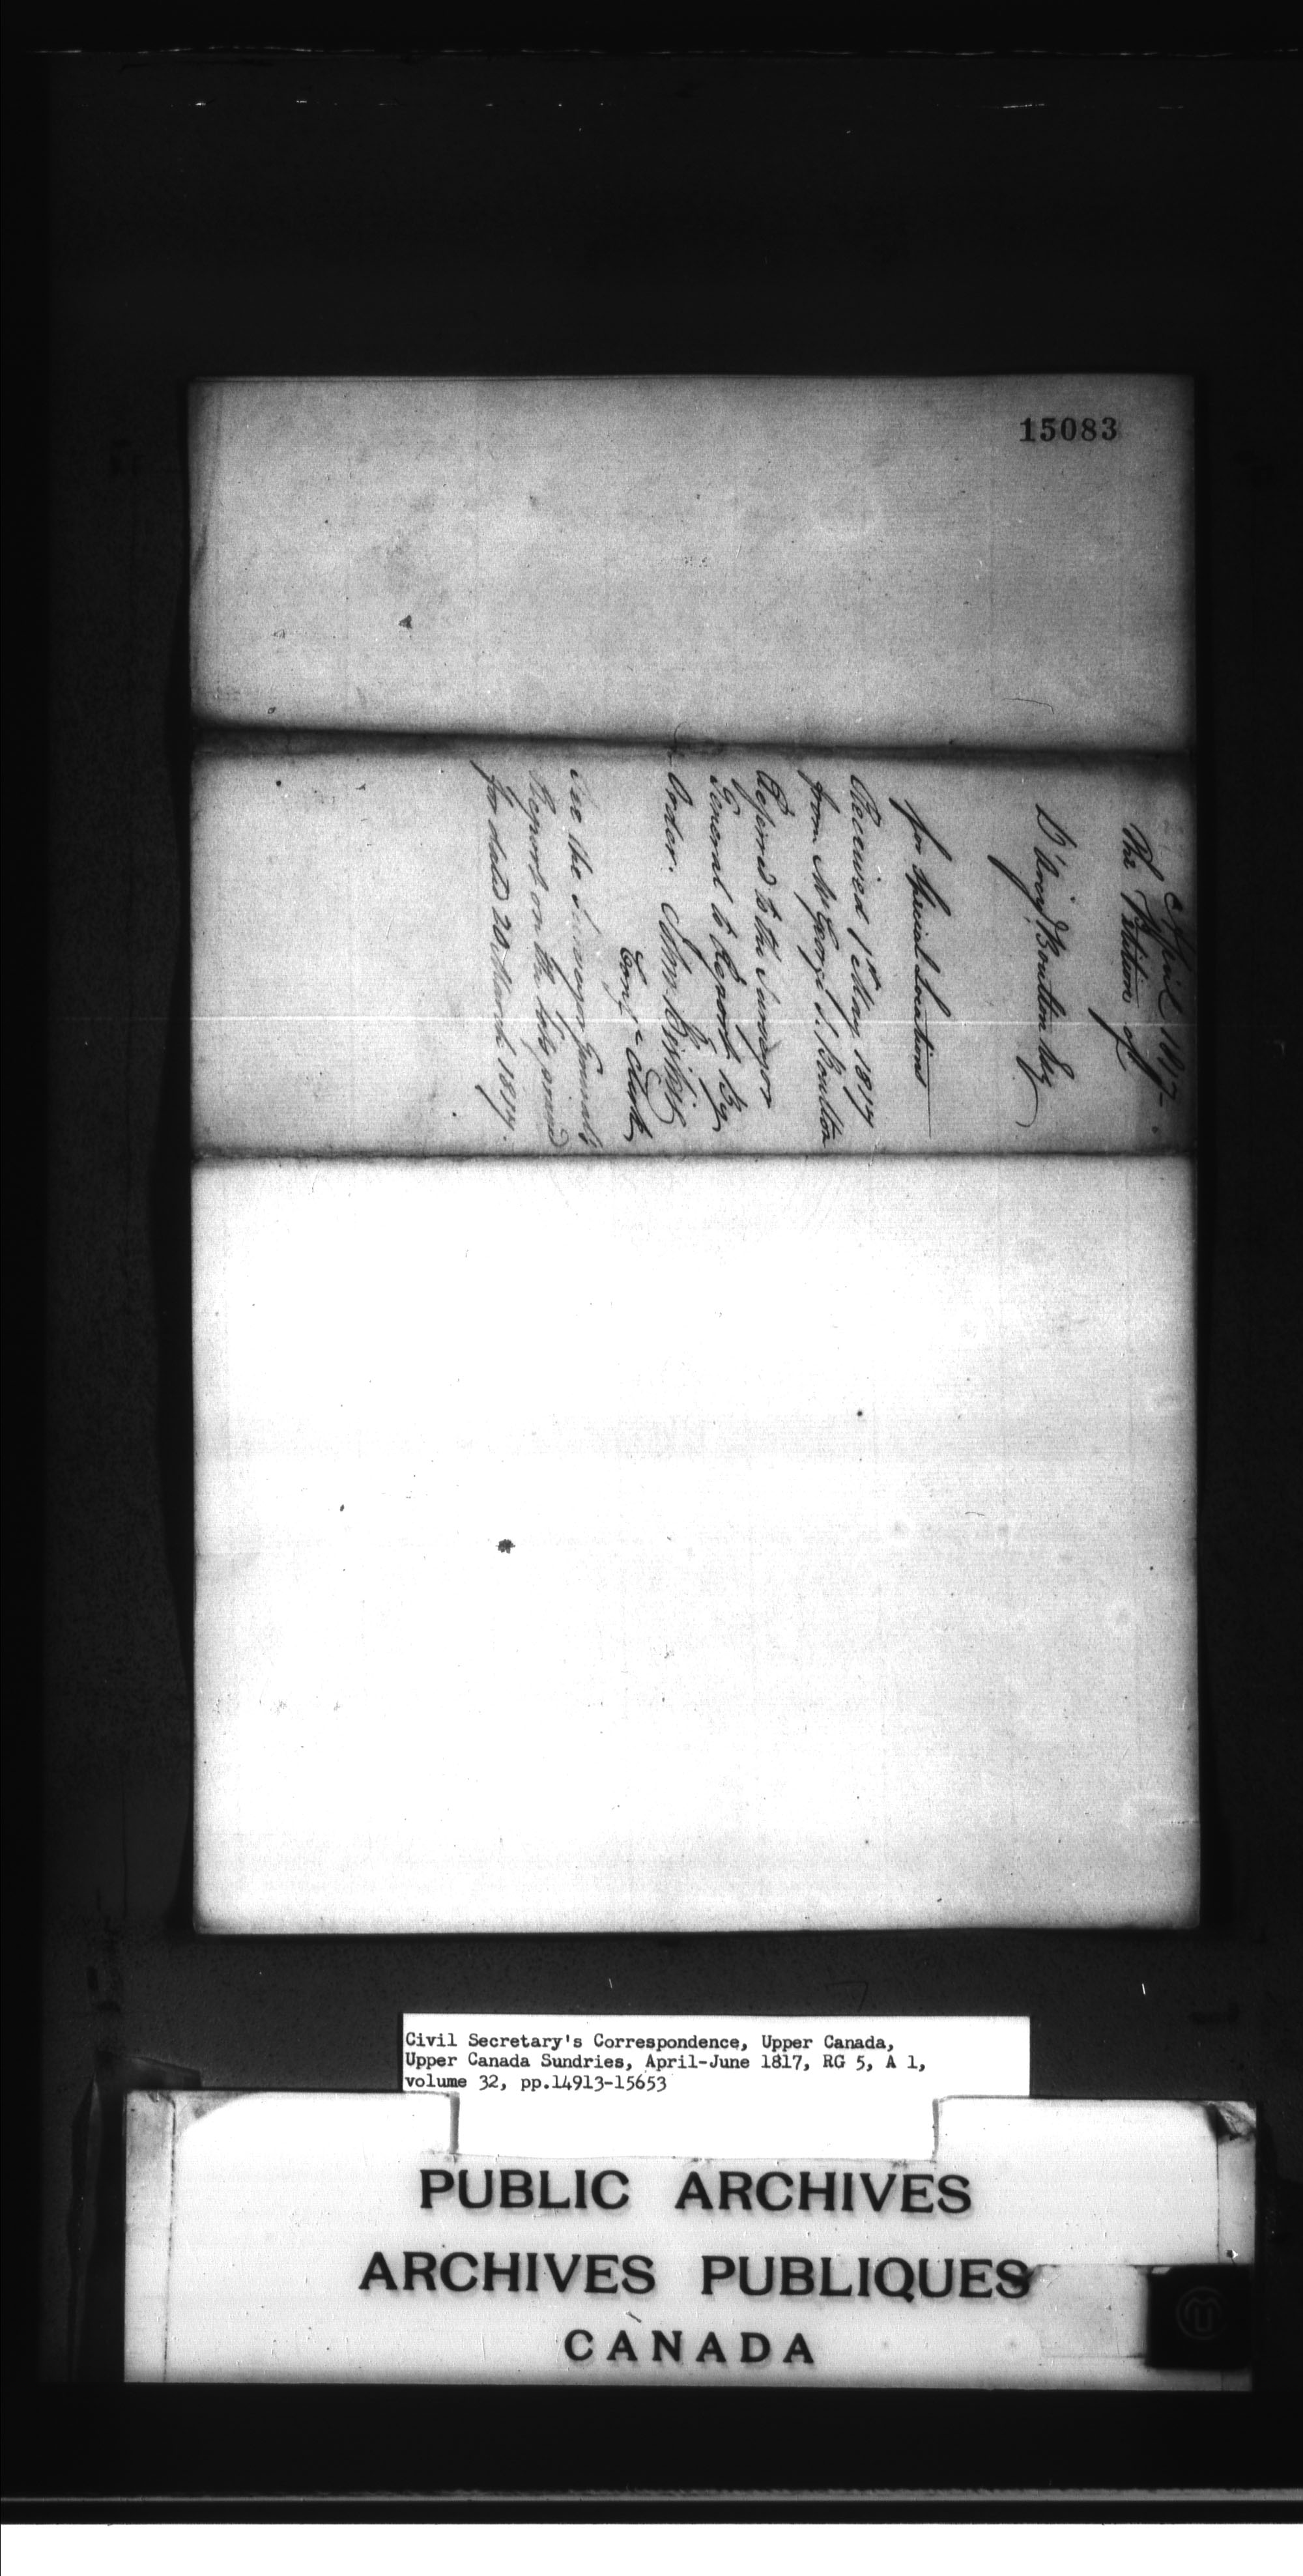 15083
April 1817
The Petition of
D'Arcy Boulton Esq
for Special Locations
Received 1st May 1817
from Mr George S. Boulton
Referred to the Surveyor
General to Report by
Order.
Confe Clerk
See the Surveyor General's
Report on the
for dated 20 March 1817.
Civil Secretary's Correspondence, Upper Canada,
Upper Canada Sundries, April-June 1817, RG 5, A 1,
volume 32, pp.14913-15653
PUBLIC ARCHIVES
ARCHIVES PUBLIQUES
CANADA